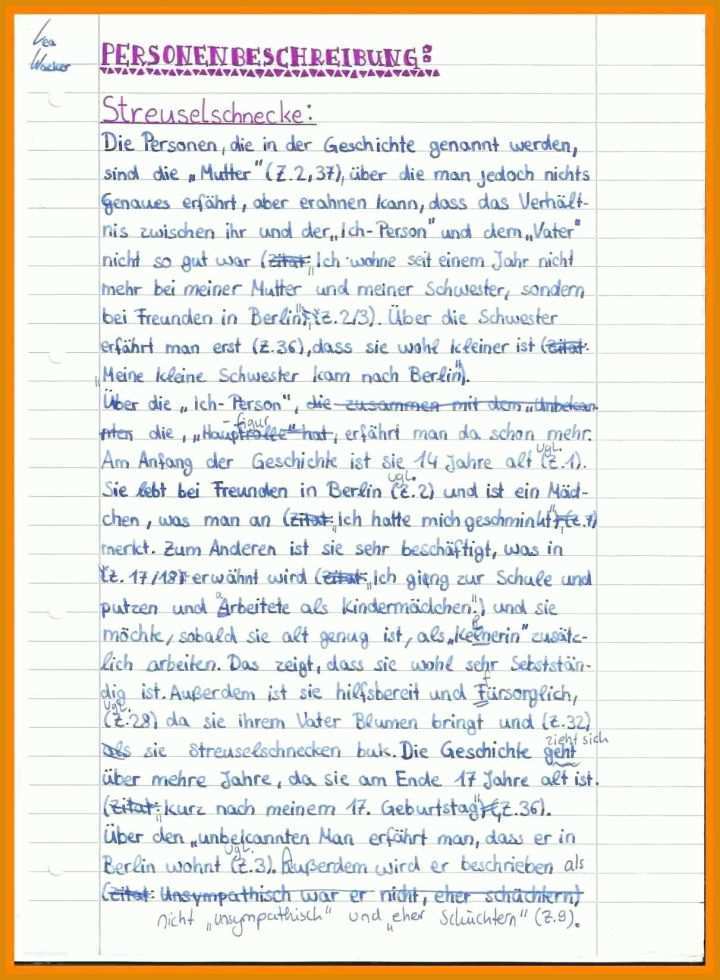 Lea
Wacker
PERSONENBESCHREIBUNG:
Streuselschnecke:
Die Personen, die in der Geschichte genannt werden,
sind die „Mutter" (Z.2,37), über die man jedoch nichts
Genaues erfährt, aber erahnen kann, dass das Verhält-
nis zwischen ihr und der „Ich-Person" und dem „Vater"
nicht so gut war (Zitat: „Ich wohne seit einem Jahr nicht
mehr bei meiner Mutter und meiner Schwester, sondern
bei Freunden in Berlin", (Z.2/3). Über die Schwester
erfährt man erst (Z.36), dass sie wohl kleiner ist (Zitat:
„Meine kleine Schwester kam nach Berlin").
Über die „Ich-Person", die zusammen mit dem „Unbekan-
nten die, „Hauptrolle" hat, erfährt man da schon mehr.
-figur
Am Anfang der Geschichte ist sie 14 Jahre alt (vgl. Z.1).
Sie lebt bei Freunden in Berlin (vgl. Z.2) und ist ein Mäd-
chen, was man an (Zitat: „Ich hatte mich geschminkt", (Z.7)
merkt. Zum Anderen ist sie sehr beschäftigt, was in
(Z. 17/18) erwähnt wird (Zitat: „Ich gieng zur Schule und
putzen und Arbeitete als Kindermädchen.") und sie
möchte, sobald sie alt genug ist, als „Kelnerin" zusätz-
lich arbeiten. Das zeigt, dass sie wohl sehr Sebststän-
dig ist. Außerdem ist sie hilfsbereit und Fürsorglich,
(vgl. Z.28) da sie ihrem Vater Blumen bringt und (Z.32)
als sie Streuselschnecken buk. Die Geschichte geht
zieht sich
über mehre Jahre, da sie am Ende 17 Jahre alt ist.
(Zitat: „kurz nach meinem 17. Geburtstag" (Z.36).
Über den „unbekannten Man erfährt man, dass er in
Berlin wohnt (vgl. Z.3). Außerdem wird er beschrieben als
(Zitat: Unsympathisch war er nicht, eher schüchtern)
nicht „unsympathisch" und „eher Schüchtern" (Z.9).